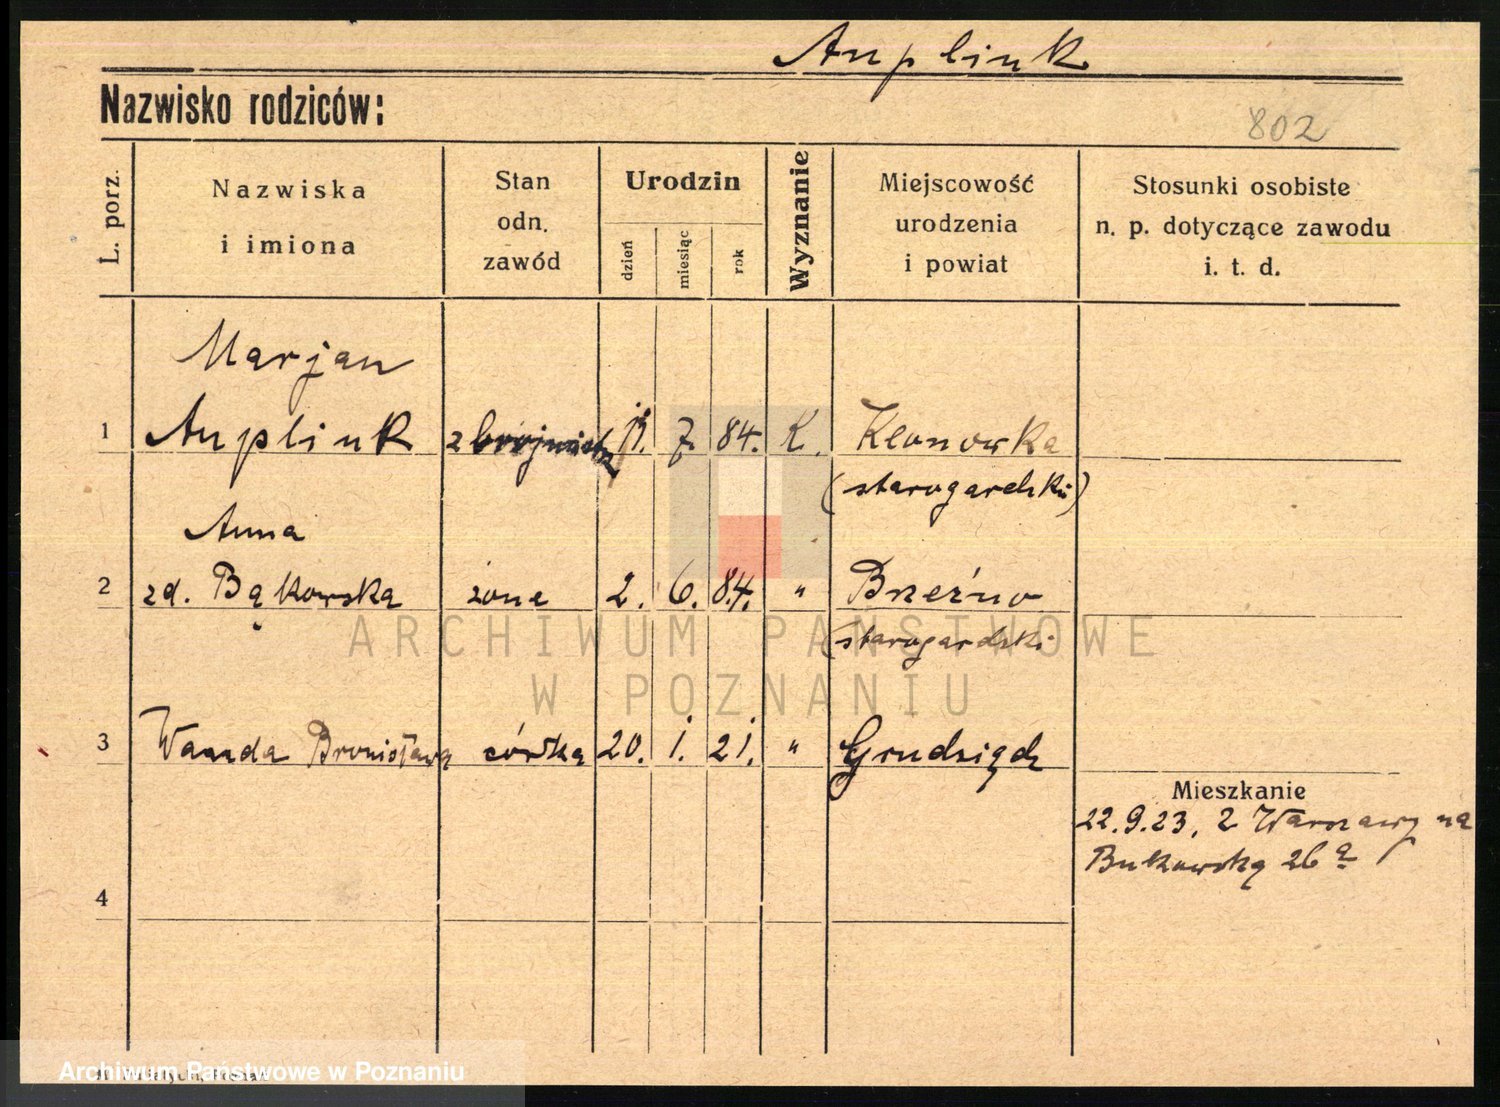 Anplink
Nazwisko rodziców:
802
L. porz.
Nazwiska
i imiona
Stan
odn.
zawód
Urodzin
dzień
miesiąc
rok
Wyznanie
Miejscowość
urodzenia
i powiat
Stosunki osobiste
n. p. dotyczące zawodu
i. t. d.
Marjan
1 Anplink zbrojmistrz 11. 7. 84. K. Klonowka
(starogardzki)
Anna
2 zd. Bąkowska żona 2. 6. 84. " Brzeźno
(starogardzki
3 Wanda Bronisława córka 20. 1. 21. " Grudziądz
Mieszkanie
22.9.23. z Warszawy na
Bukowską 26a
4
ARCHIWUM PAŃSTWOWE
W POZNANIU
Archiwum Państwowe w Poznaniu